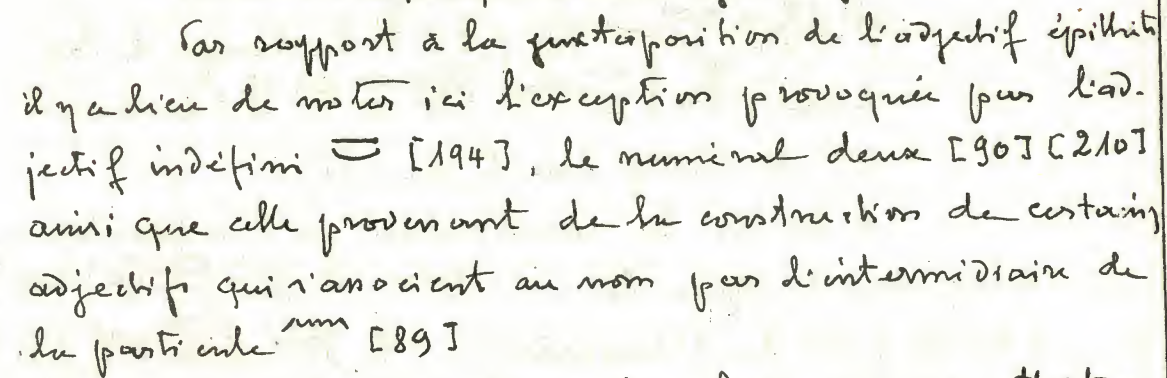 Par rapport à la juxtaposition de l'adjectif épithète
il y a lieu de noter ici l'exception provoquée par l'ad-
jectif indéfini 𓎟 [194], le numéral deux [90] [210]
ainsi que celle provenant de la construction de certains
adjectifs qui s'associent au nom par l'intermédiaire de
la particule 𓈖 [89]